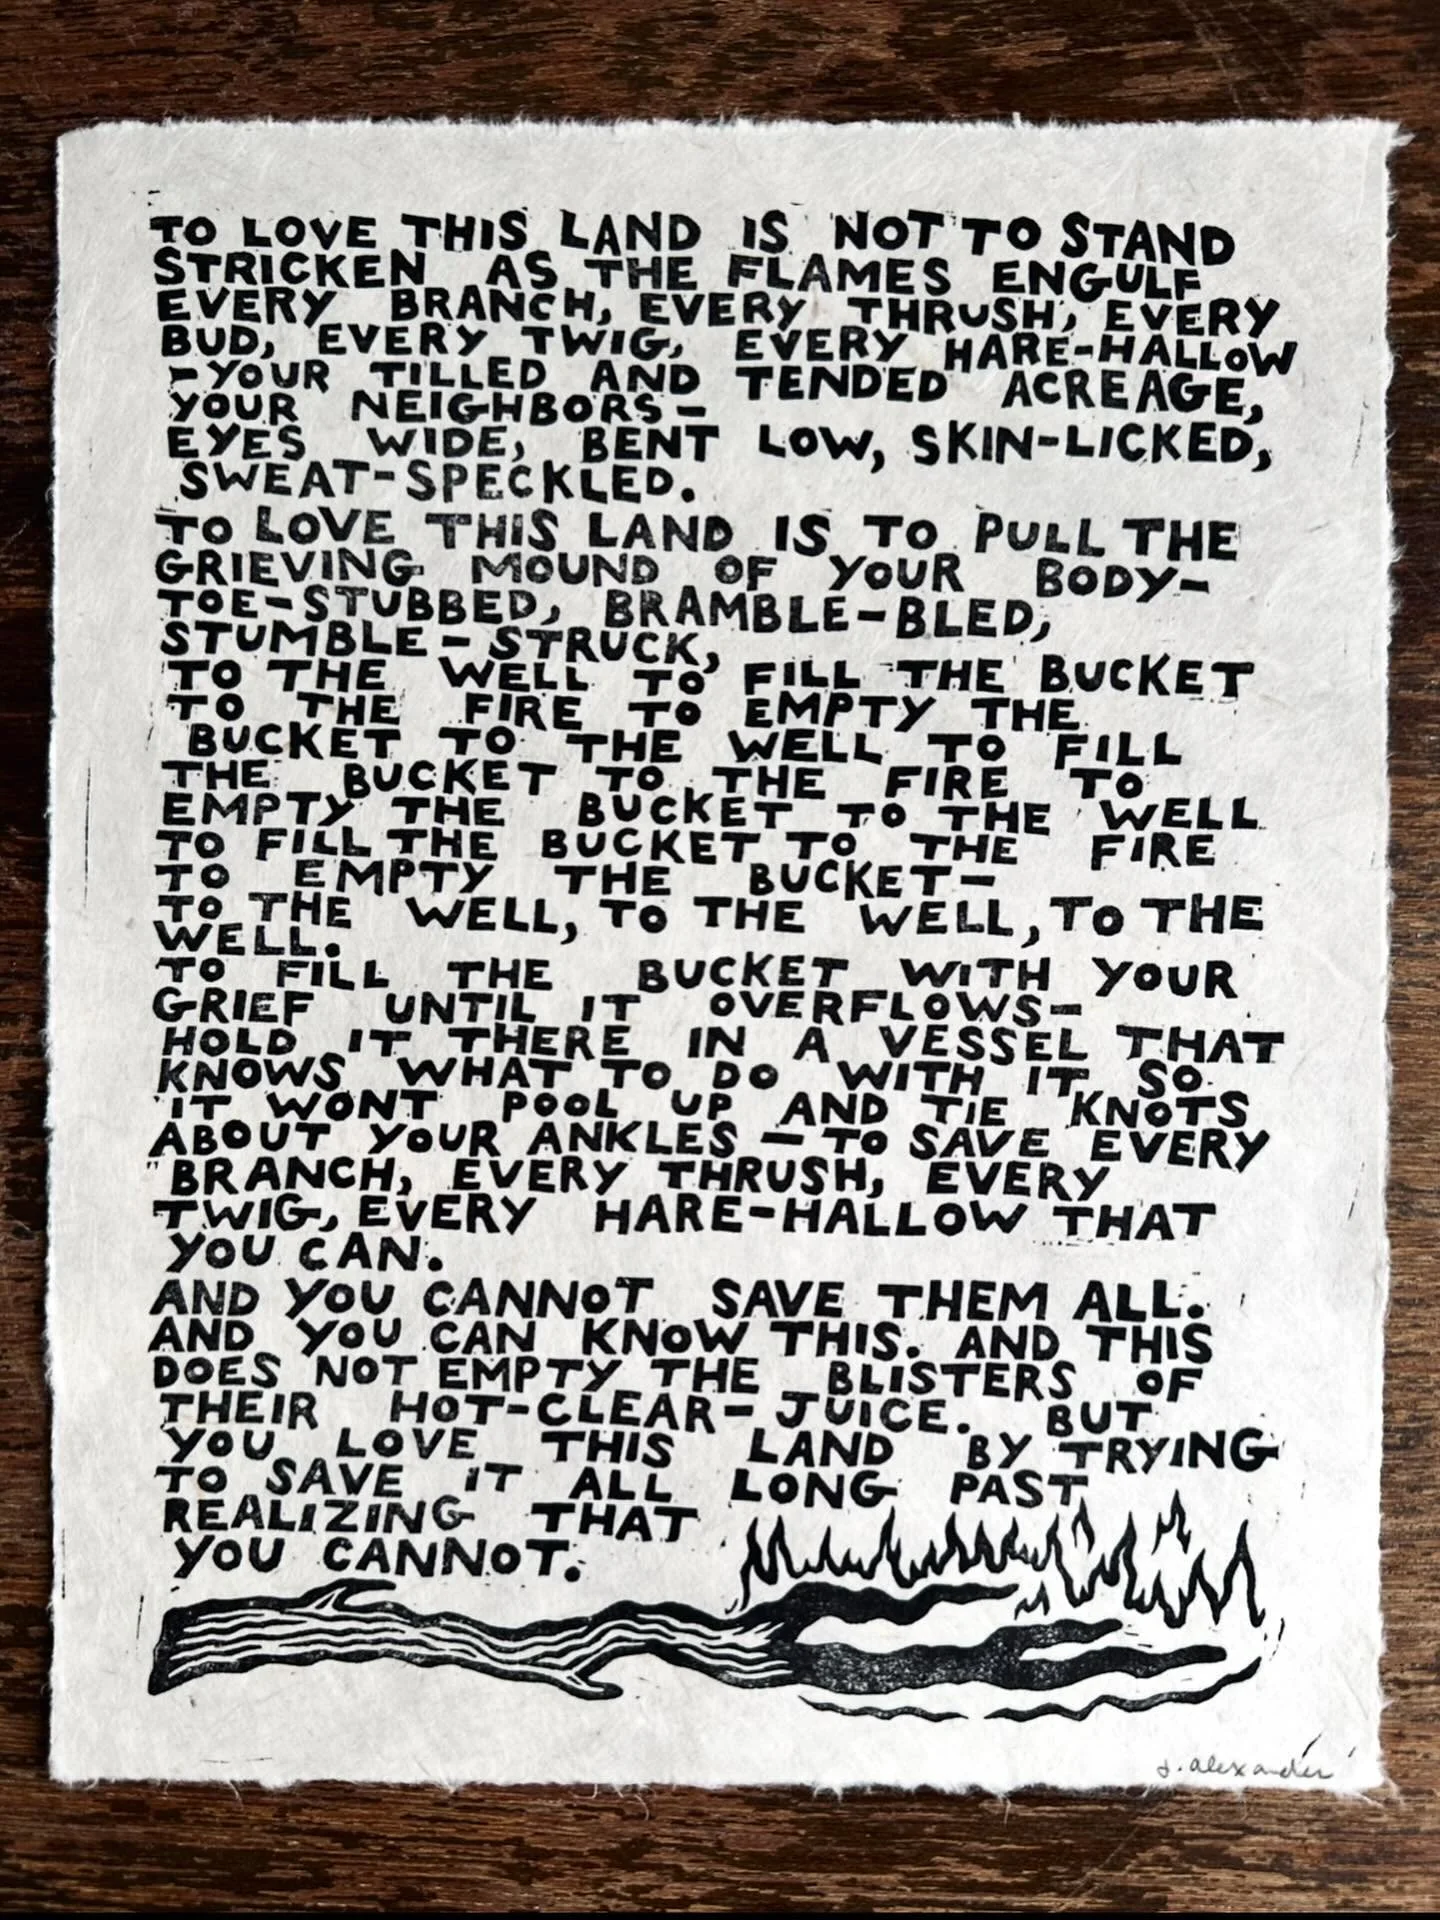 TO LOVE THIS LAND IS NOT TO STAND
STRICKEN AS THE FLAMES ENGULF
EVERY BRANCH, EVERY THRUSH, EVERY
BUD, EVERY TWIG, EVERY HARE-HALLOW
-YOUR TILLED AND TENDED ACREAGE,
YOUR NEIGHBORS-
EYES WIDE, BENT LOW, SKIN-LICKED,
SWEAT-SPECKLED.
TO LOVE THIS LAND IS TO PULL THE
GRIEVING MOUND OF YOUR BODY-
TOE-STUBBED, BRAMBLE-BLED,
STUMBLE-STRUCK,
TO THE WELL TO FILL THE BUCKET
TO THE FIRE TO EMPTY THE
BUCKET TO THE WELL TO FILL
THE BUCKET TO THE FIRE TO
EMPTY THE BUCKET TO THE WELL
TO FILL THE BUCKET TO THE FIRE
TO EMPTY THE BUCKET-
TO THE WELL, TO THE WELL, TO THE
WELL.
TO FILL THE BUCKET WITH YOUR
GRIEF UNTIL IT OVERFLOWS-
HOLD IT THERE IN A VESSEL THAT
KNOWS WHAT TO DO WITH IT SO
IT WONT POOL UP AND TIE KNOTS
ABOUT YOUR ANKLES - TO SAVE EVERY
BRANCH, EVERY THRUSH, EVERY
TWIG, EVERY HARE-HALLOW THAT
YOU CAN.
AND YOU CANNOT SAVE THEM ALL.
AND YOU CAN KNOW THIS. AND THIS
DOES NOT EMPTY THE BLISTERS OF
THEIR HOT-CLEAR-JUICE. BUT
YOU LOVE THIS LAND BY TRYING
TO SAVE IT ALL LONG PAST
REALIZING THAT
YOU CANNOT.
J. alexander